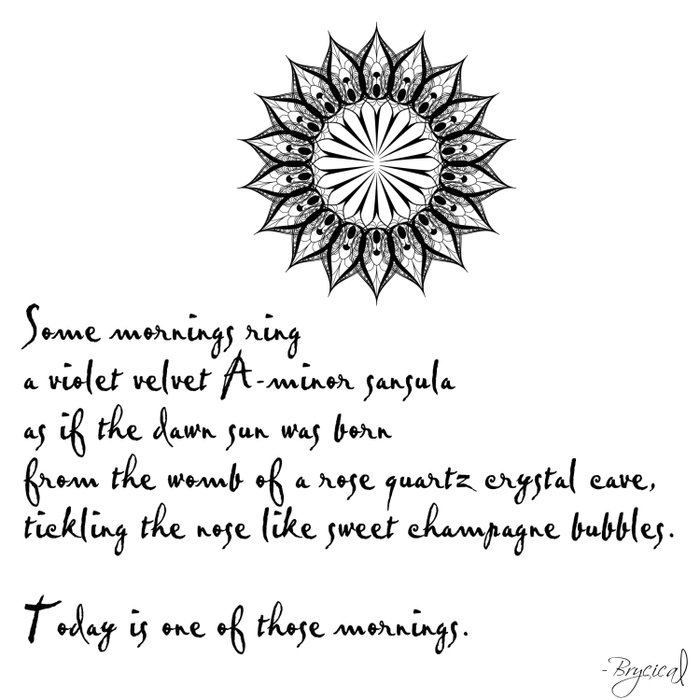 Some mornings ring
a violet velvet A-minor sansula
as if the dawn sun was born
from the womb of a rose quartz crystal cave,
tickling the nose like sweet champagne bubbles.
Today is one of those mornings.
-Brycical